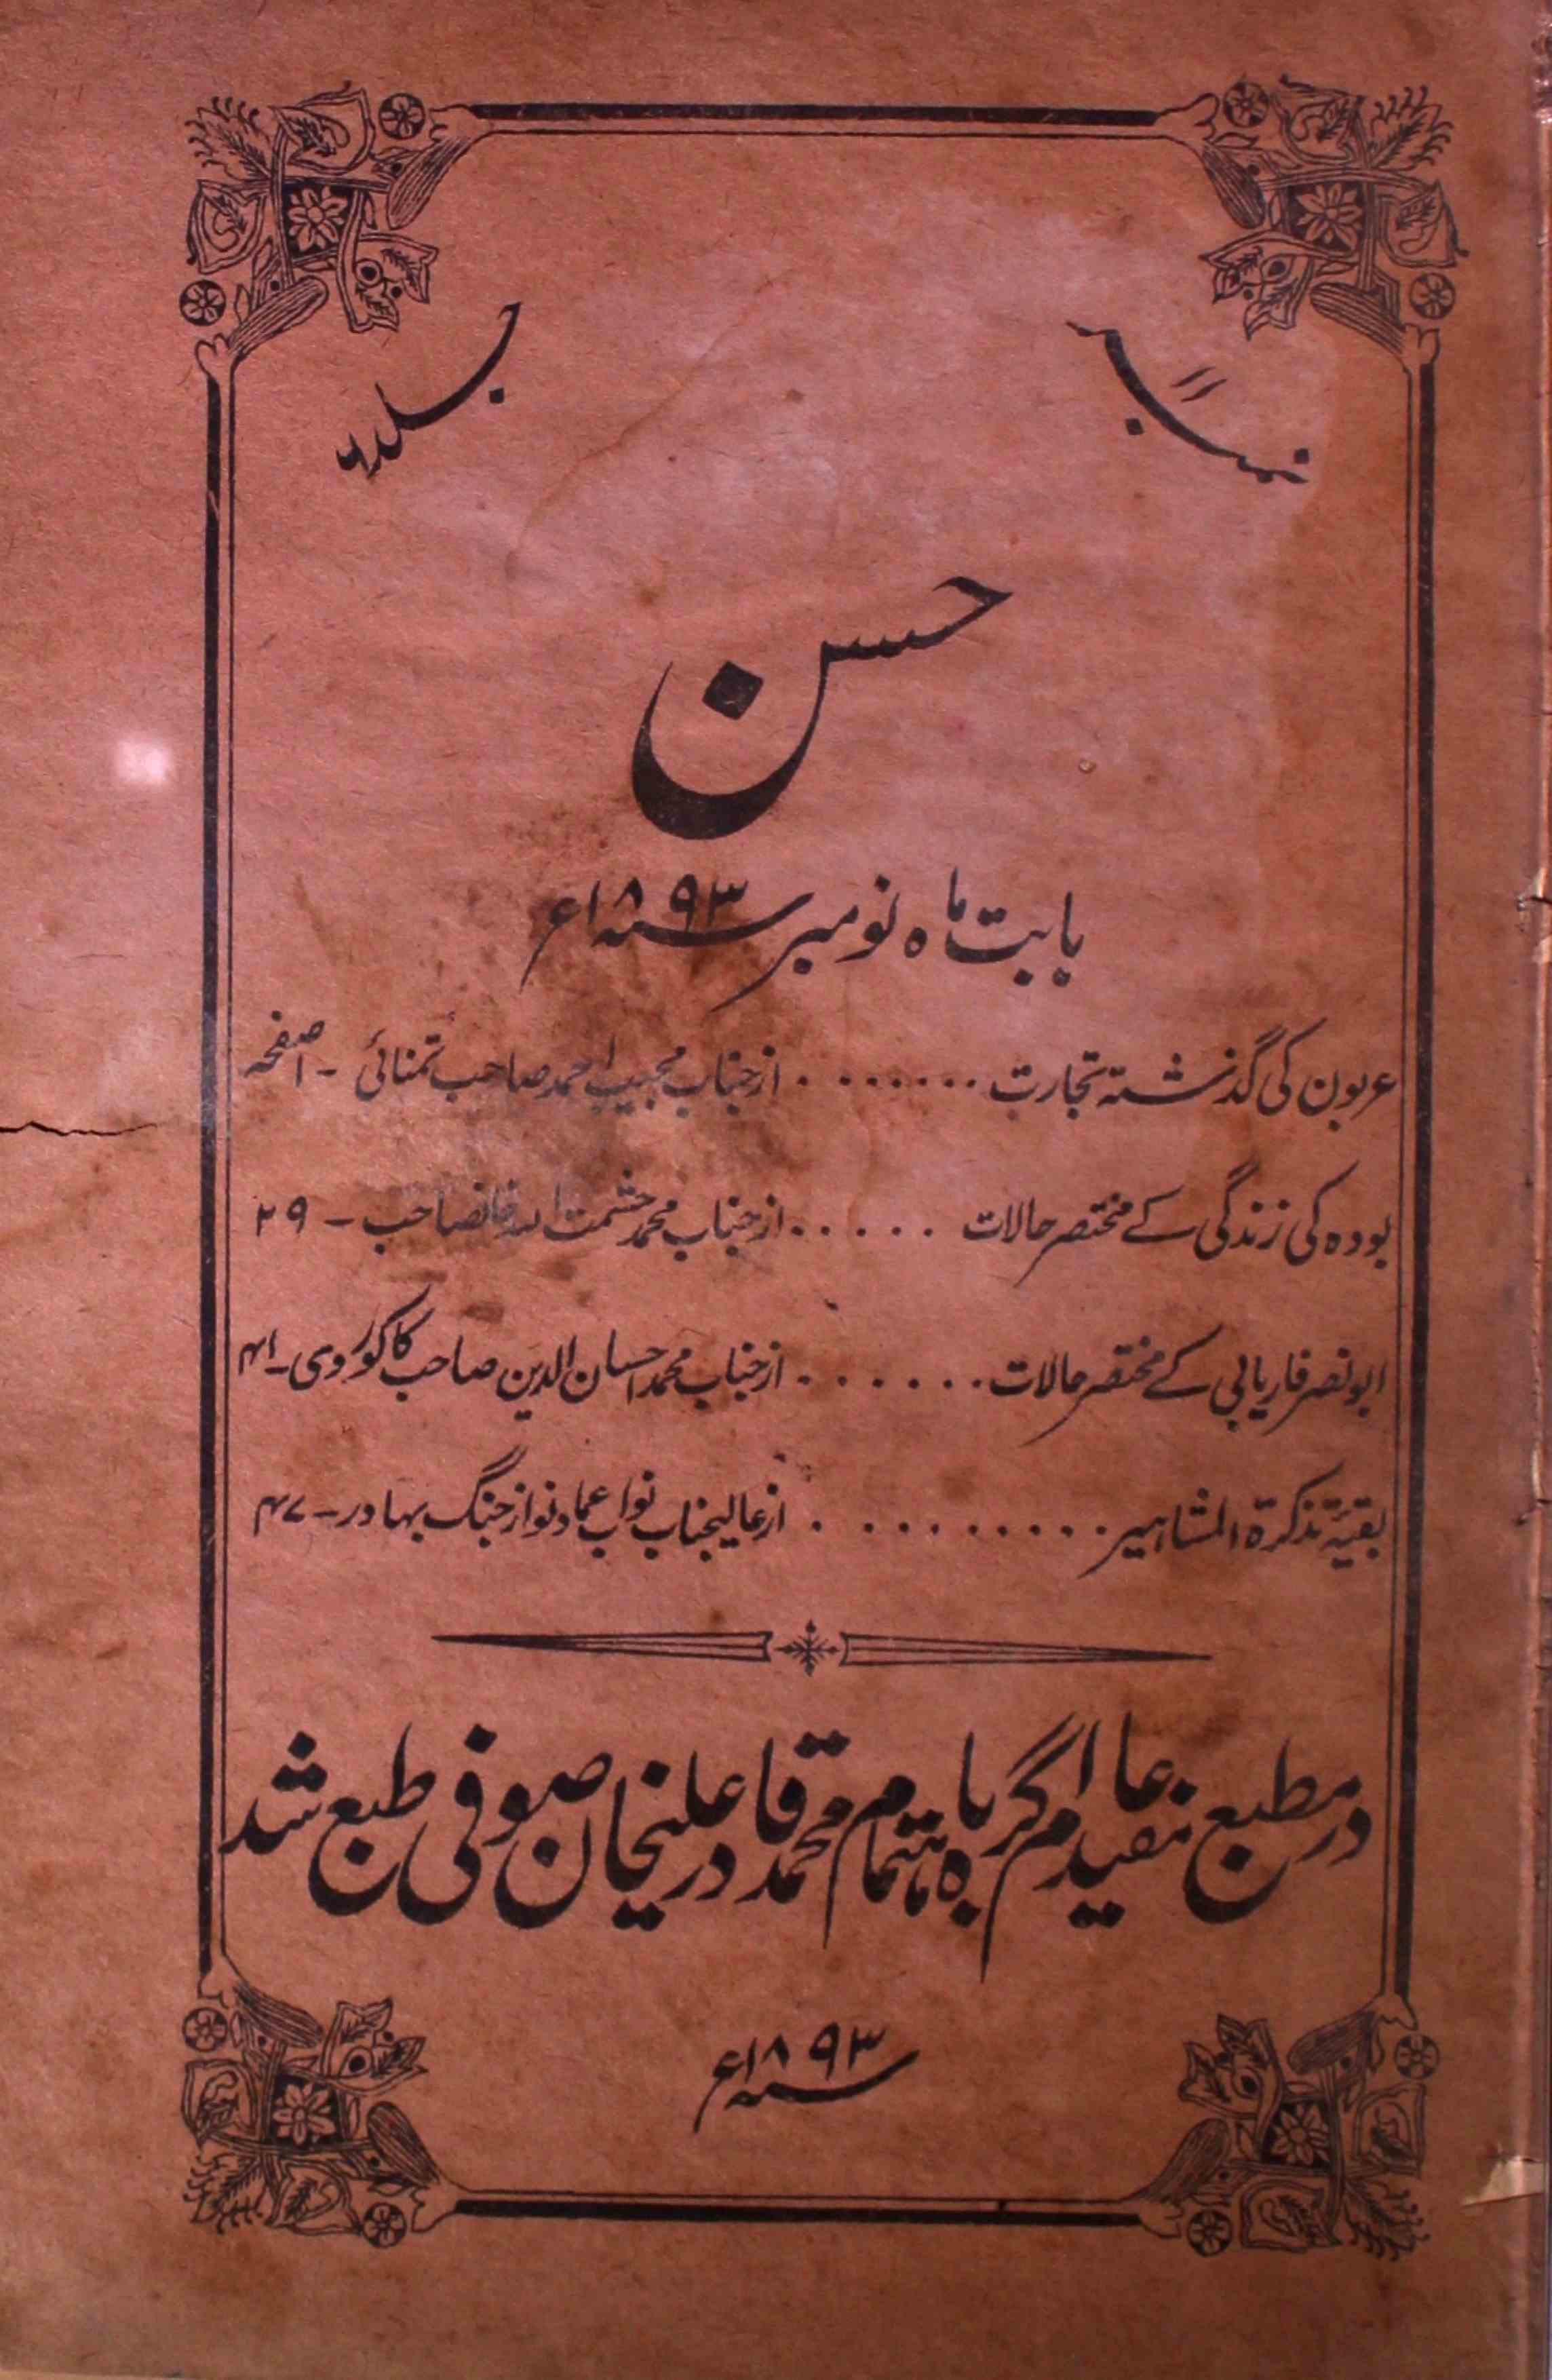 نمبر ۱۱
جلد ۶
حسن
بابت ماہ نومبر سنہ ۱۸۹۳ء
عربون کی گذشتہ تجارت . . . . . . . از جناب مجیب احمد صاحب تمنائی - ۱ صفحہ
بودہ کی زندگی کے مختصر حالات . . . . . . از جناب محمد حشمت اللہ خانصاحب - ۲۹
ابو نصر فاریابی کے مختصر حالات . . . . . . . از جناب محمد احسان الدین صاحب کاکوروی - ۴۱
بقیۂ تذکرة المشاہیر . . . . . . . . . . از عالیجناب نواب عماد نواز جنگ بہادر - ۴۷
در مطبع مفید عام اگرہ باہتمام محمد قادر علیخان صوفی طبع شد
سنہ ۱۸۹۳ء